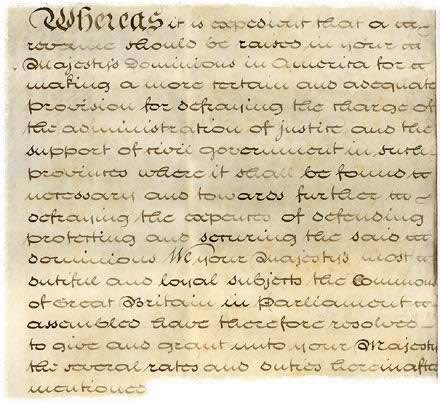 Whereas it is expedient that a
revenue should be raised in your
Majesty's Dominions in America for
making a more certain and adequate
provision for defraying the charge of
the administration of justice and the
support of civil government in such
provinces where it shall be found
necessary and towards further
defraying the expences of defending
protecting and securing the said
dominions We your Majesty's most
dutiful and loyal subjects the Commons
of Great Britain in Parliament
assembled have therefore resolved
to give and grant unto your Majesty
the several rates and duties hereinafter
mentioned